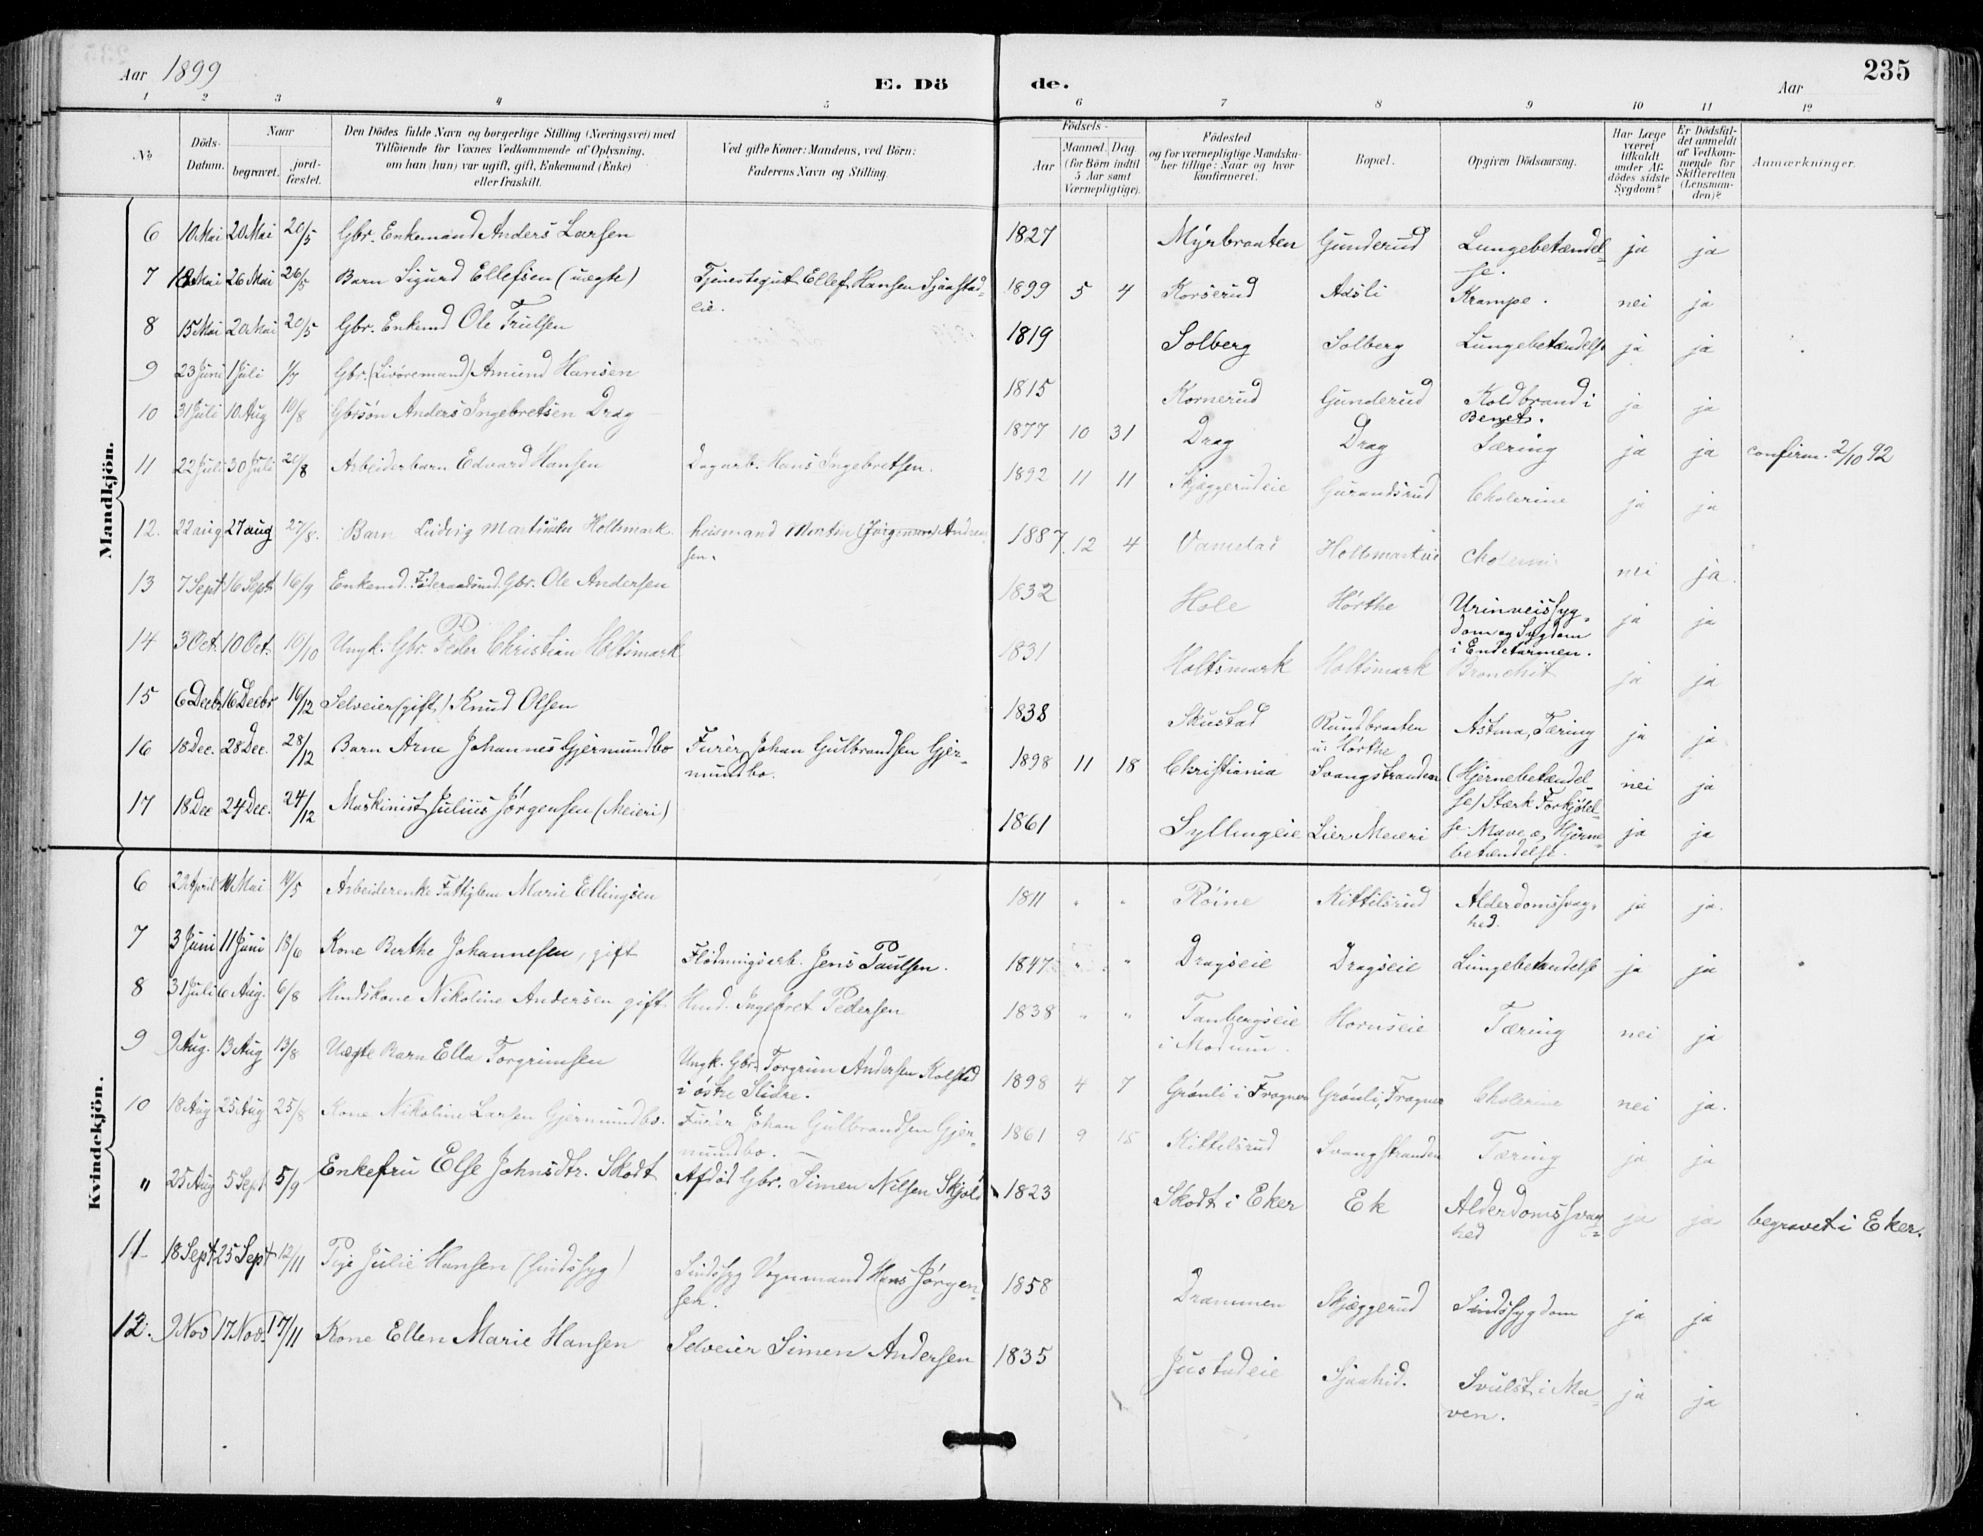 Aar 1899
E. Dö de.
Aar
235
1 2 3 4 5 6 7 8 9 10 11 12
No
Döds-Datum.
Naar
begravet.
jord-fæstet.
Den Dödes fulde Navn og borgerlige Stilling (Næringsvei) med
Tilføiende for Voxnes Vedkommende af Oplysning,
om han (hun) var ugift, gift, Enkemand (Enke)
eller fraskilt.
Ved gifte Koner: Mandens, ved Börn:
Faderens Navn og Stilling.
Födsels-
Aar
Maaned. Dag.
(for Börn indtil
5 Aar samt
Værnepligtige).
Födested
og for værnepligtige Mandska-
ber tillige: Naar og hvor
konfirmeret.
Bopæl.
Opgiven Dödsaarsag.
Har Læge
været
tilkaldt
under Af-
dödes sidste
Sygdom?
Er Dödsfal-
det anmeldt
af Vedkom-
mende for
Skifteretten
(Lensman-
den)?
Anmærkninger.
Mandkjön.
6 10 Mai 20 Mai 20/5 Gbr. Enkemand Anders Larsen 1827 Myrbraaten Gunderud Lungebetændel-
se. ja ja
7 18 Mai 26 Mai 26/5 Barn Sigurd Ellefsen (uægte) Tjenestegut Ellef Hansen Sjaastad-
eie. 1899 5 4 Korserud Aasli Krampe. nei ja
8 15 Mai 20 Mai 20/5 Gbr. Enkemd Ole Trulsen 1819 Solberg Solberg Lungebetændelse ja ja
9 23 Juni 1 Juli 1/7 Gbr. (Livöremand) Amund Hansen 1815 Kornerud Gunderud Koldbrand i
Benet. ja ja
10 31 Juli 10 Aug 10/8 Gbrsön Anders Ingebretsen Drag 1877 10 31 Drag Drag Tæring ja ja confirm. 2/10 92
11 22 Juli 30 Juli 20/8 Arbeiderbarn Edvard Hansen Dagarb. Hans Ingebretsen. 1892 11 11 Skjæggerudeie Gurandsrud Cholerine ja ja
12. 22 aug 27 aug 27/8. Barn Ludvig Martinsen Holtsmark husmand Martin (Jörgensen) Andrea-
sen. 1887 12 4 Holtsmarkeie nei ja.
13 7 Sept 16 Sept 16/9 Enkemd. Föderaadsmd. Gbr. Ole Andersen 1832 Hole Hörthe Urinveissyg-
dom og Sygdom
i Endetarmen. ja ja
14 3 Oct. 10 Oct. 10/10 Ungk. Gbr. Peder Christian Holtsmark 1831 Holtsmark Holtsmark Bronchit ja ja
15 6 Decbr 16 Decbr 16/12 Selveier (gift) Knud Olsen 1838 Skustad Rundbraaten
u. Hörthe Astma, Tæring ja ja
16 18 Dec. 28 Dec. 28/12 Barn Arne Johannes Gjermundbo Furér Johan Gulbrandsen Gjer-
mundbo. 1898 11 18 Christiania Svangstranden (Hjernebetændel-
se) Stærk Forkjölel-
se. nei ja
17 18 Dec 24 Dec. 24/12 Maskinist Julius Jörgensen (Meieri) 1861 Syllingeie Lier Meieri Mave o. Hjerne-
betændelse. ja ja
Kvindekjön.
6 29 April 14 Mai 14/5 Arbeiderenke Fattiglem Marie Ellingsen 1811 " " Röine Kittilsrud Alderdomssvag-
hed. ja ja.
7 3 Juni 11 Juni 18/6 Kone Berthe Johannesen, gift Flödningsarb. Jens Paulsen. 1847 " " Dragseie Dragseie Lungebetændelse ja ja
8 31 Juli 6 Aug. 6/8 Hmdskone Nikoline Andersen gift. Hmd. Ingebret Pedersen 1838 " " Tanbergseie
i Modum. Hornseie Tæring nei ja
9 9 Aug. 13 Aug 13/8 Uægte Barn Ella Torgrimsen Ungk. Gbr. Torgrim Andersen Kolstad
i östre Slidre. 1898 4 7 Grönli i Fragner Grönli, Fragner Cholerine nei ja.
10 18 Aug 25 Aug 25/8 Kone Nikoline Larsen Gjermundbo. Furér Johan Gulbrandsen Gjer-
mundbo. 1861 9 15 Kittilsrud Svangstranden Tæring ja ja
" 25 Aug 5 Sept 5/9 Enkefru Else Johnsdtr. Skodt Afdöd Gbr. Simen Nilsen Skjöl 1823 Skodt i Eker Ek Alderdomssvag-
hed ja ja begravet i Eker.
11 18 Sept 25 Sept 12/11 Pige Julie Hansen (sindssyg) Sindssyg Vognmand Hans Jörgen-
sen. 1858 Drammen Skjæggerud Sindssygdom ja ja
12. 9 Nov 17 Nov. 17/11 Kone Ellen Marie Hansen Selveier Simen Andersen 1835 Justadeie Svulst i Ma-
ven. ja ja